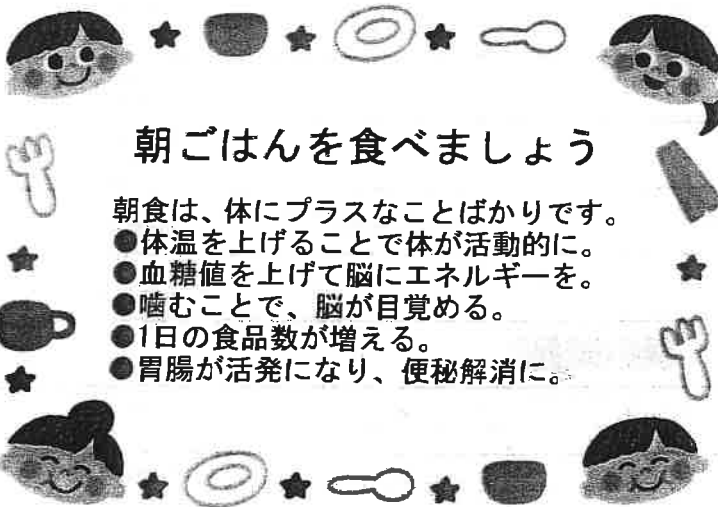 朝ごはんを食べましょう
朝食は、体にプラスなことばかりです。
●体温を上げることで体が活動的に。
●血糖値を上げて脳にエネルギーを。
●噛むことで、脳が目覚める。
●1日の食品数が増える。
●胃腸が活発になり、便秘解消に。